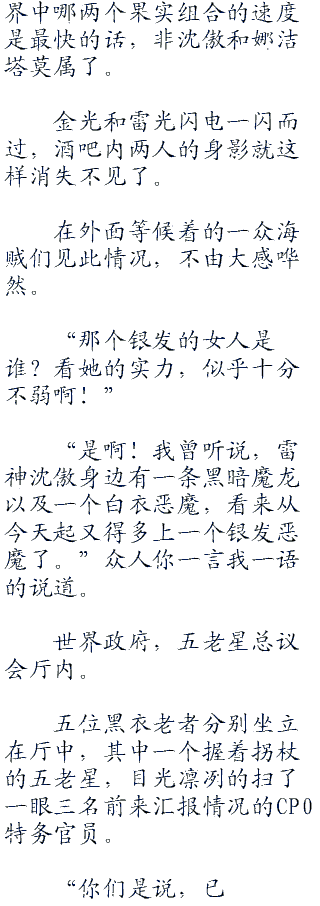 界中哪两个果实组合的速度
是最快的话，非沈傲和娜洁
塔莫属了。
金光和雷光闪电一闪而
过，酒吧内两人的身影就这
样消失不见了。
在外面等候着的一众海
贼们见此情况，不由大感哗
然。
“那个银发的女人是
谁？看她的实力，似乎十分
不弱啊！”
“是啊！我曾听说，雷
神沈傲身边有一条黑暗魔龙
以及一个白衣恶魔，看来从
今天起又得多上一个银发恶
魔了。”众人你一言我一语
的说道。
世界政府，五老星总议
会厅内。
五位黑衣老者分别坐立
在厅中，其中一个握着拐杖
的五老星，目光凛冽的扫了
一眼三名前来汇报情况的CP0
特务官员。
“你们是说，已